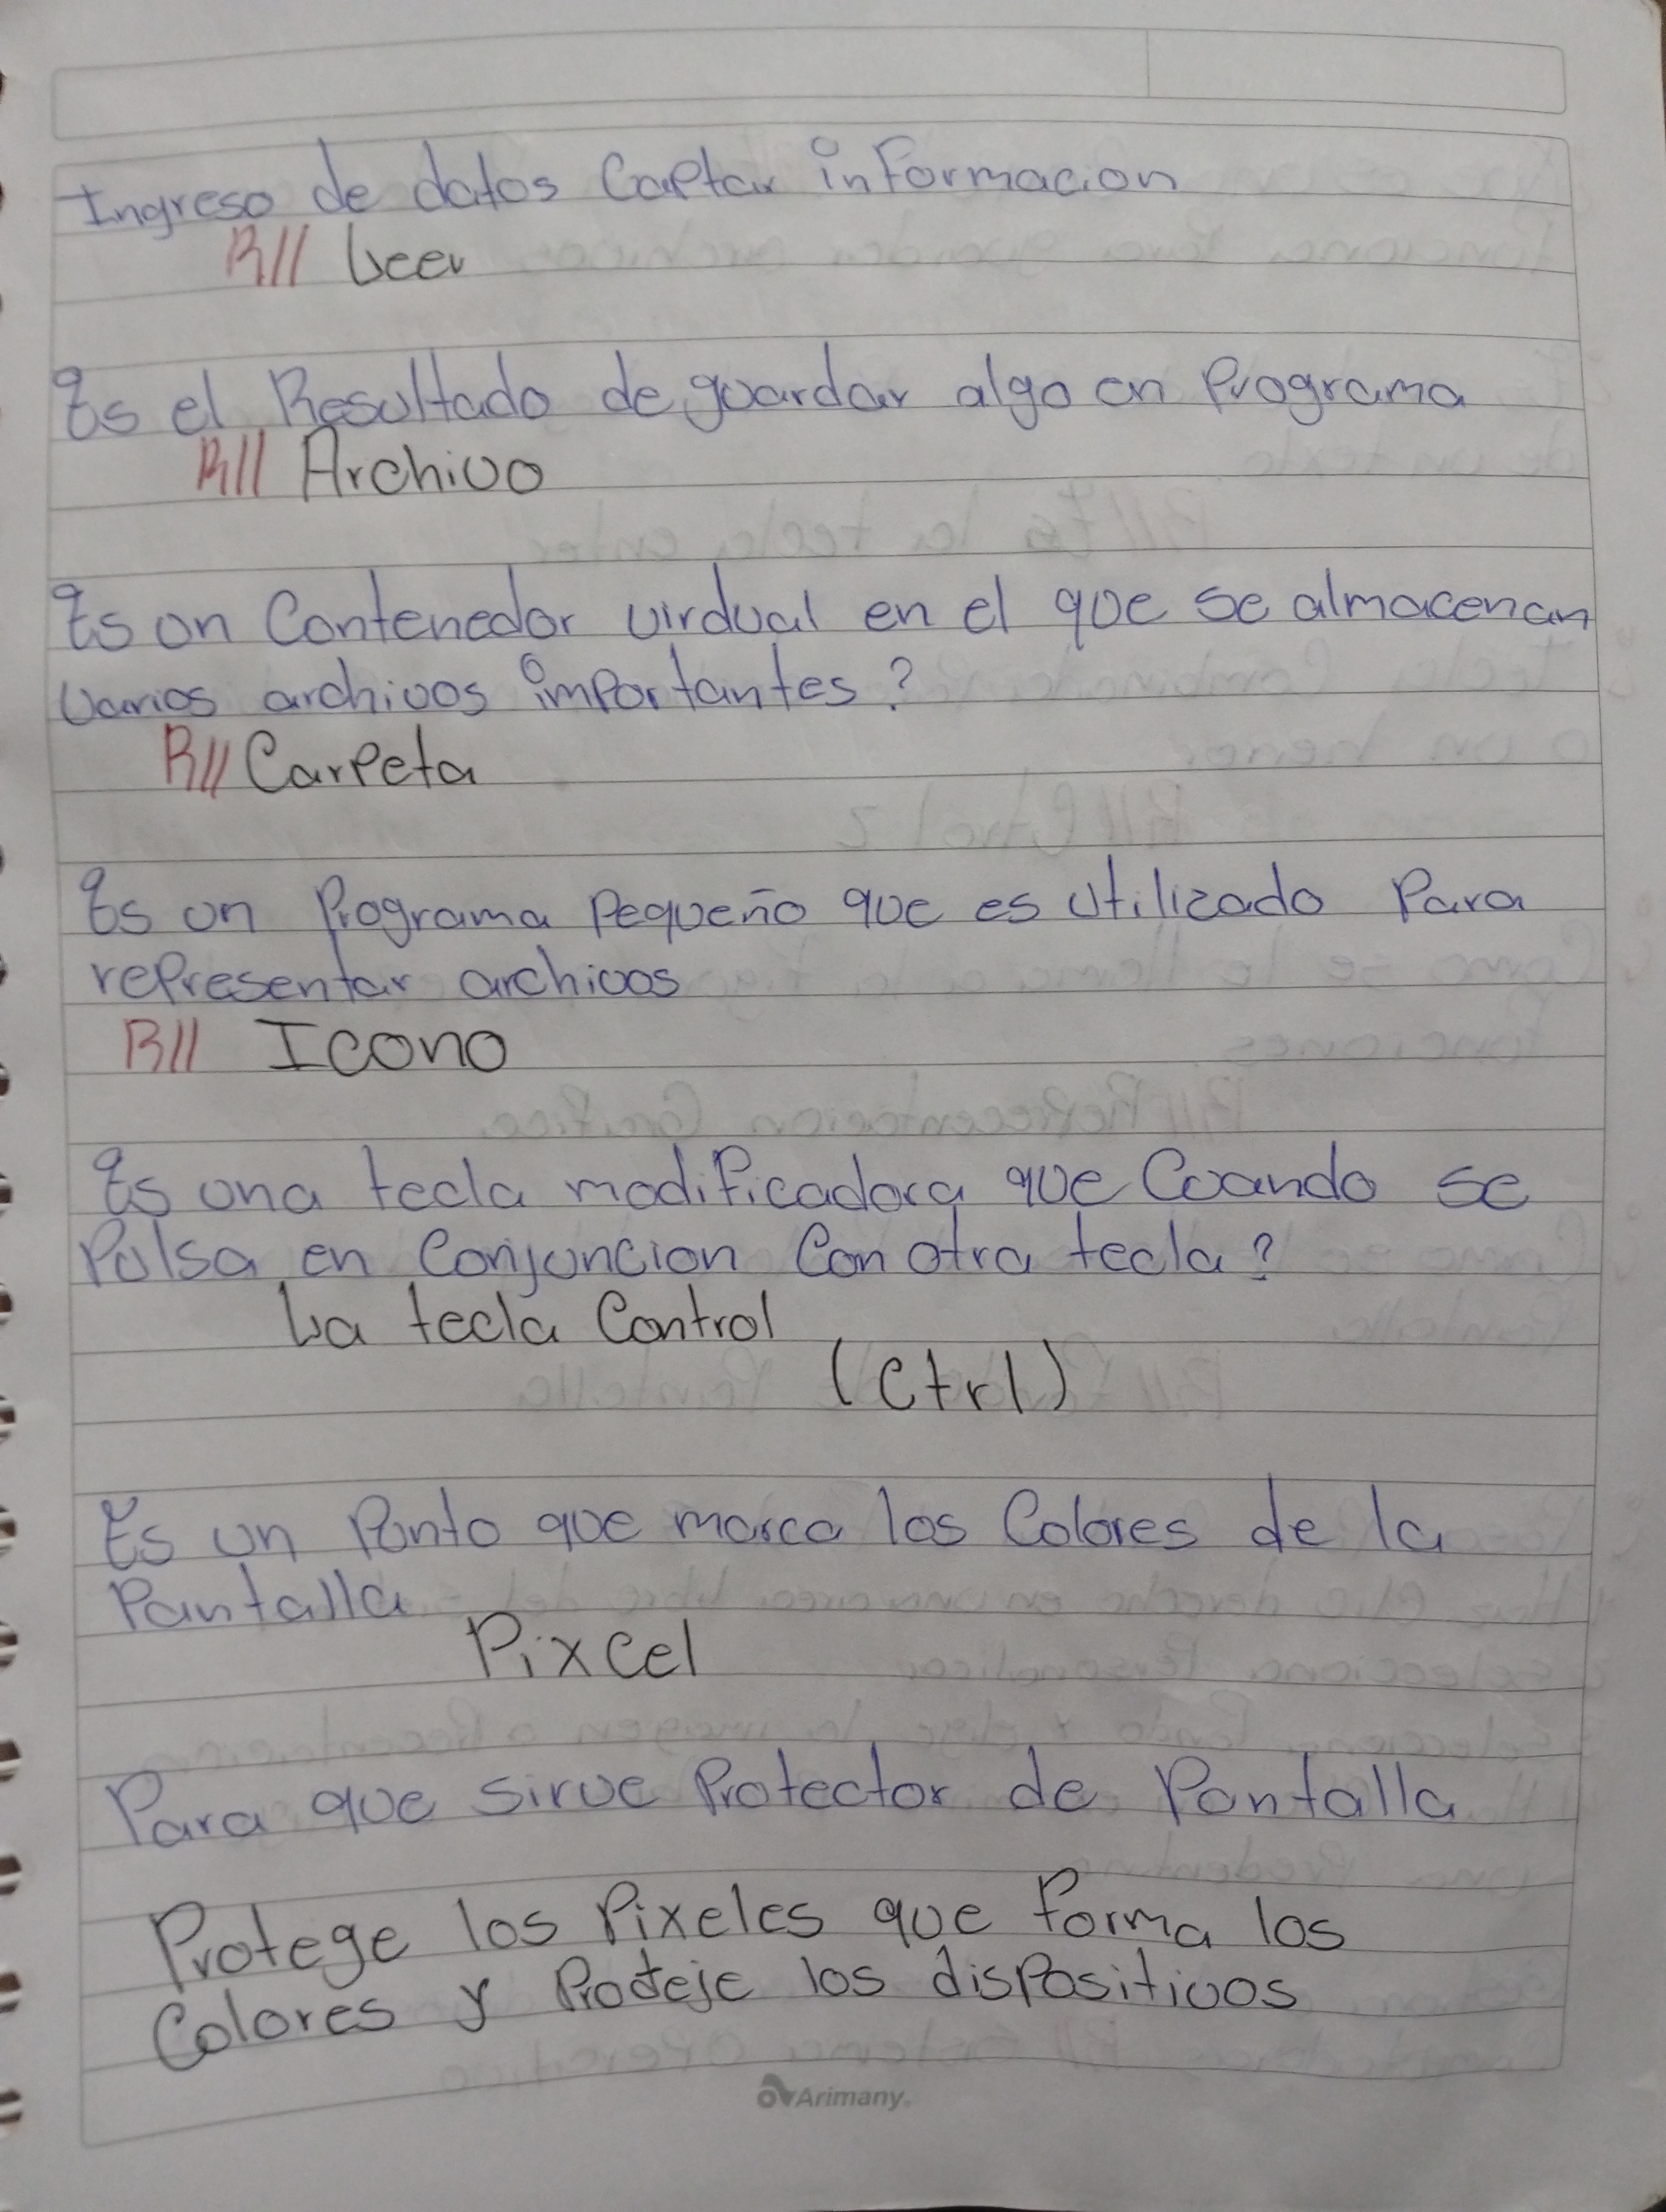 Ingreso de datos Captar informacion
R// Leer
Es el Resultado de guardar algo en Programa
R// Archivo
Es un Contenedor virdual en el que se almacenan
varios archivos importantes?
R// Carpeta
Es un Programa Pequeño que es utilizado Para
representar archivos
R// Icono
Es una tecla modificadora que Cuando se
Pulsa en Conjuncion Con otra tecla?
La tecla Control
(Ctrl)
Es un Punto que marca los Colores de la
Pantalla
Pixcel
Para que sirve Protector de Pantalla
Protege los Pixeles que forma los
Colores y Proteje los dispositivos
Arimany